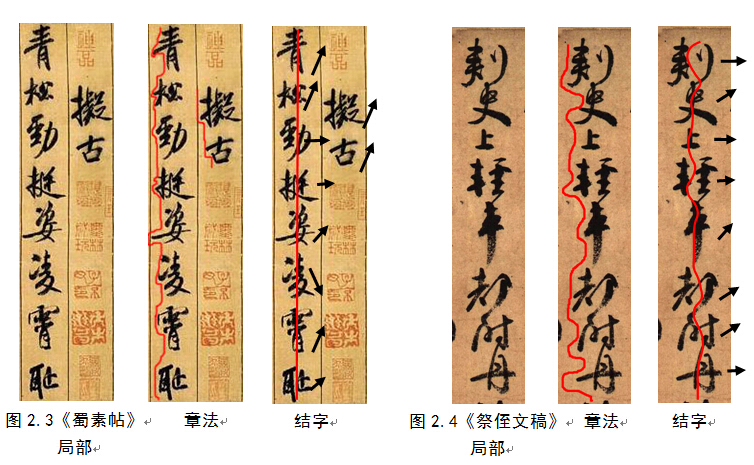 擬古
青松勁挺姿凌霄耻
擬古
青松勁挺姿凌霄耻
擬古
青松勁挺姿凌霄耻
刺史上輕車都尉丹
刺史上輕車都尉丹
刺史上輕車都尉丹
图 2.3《蜀素帖》 章法 结字
局部
图 2.4《祭侄文稿》 章法 结字
局部